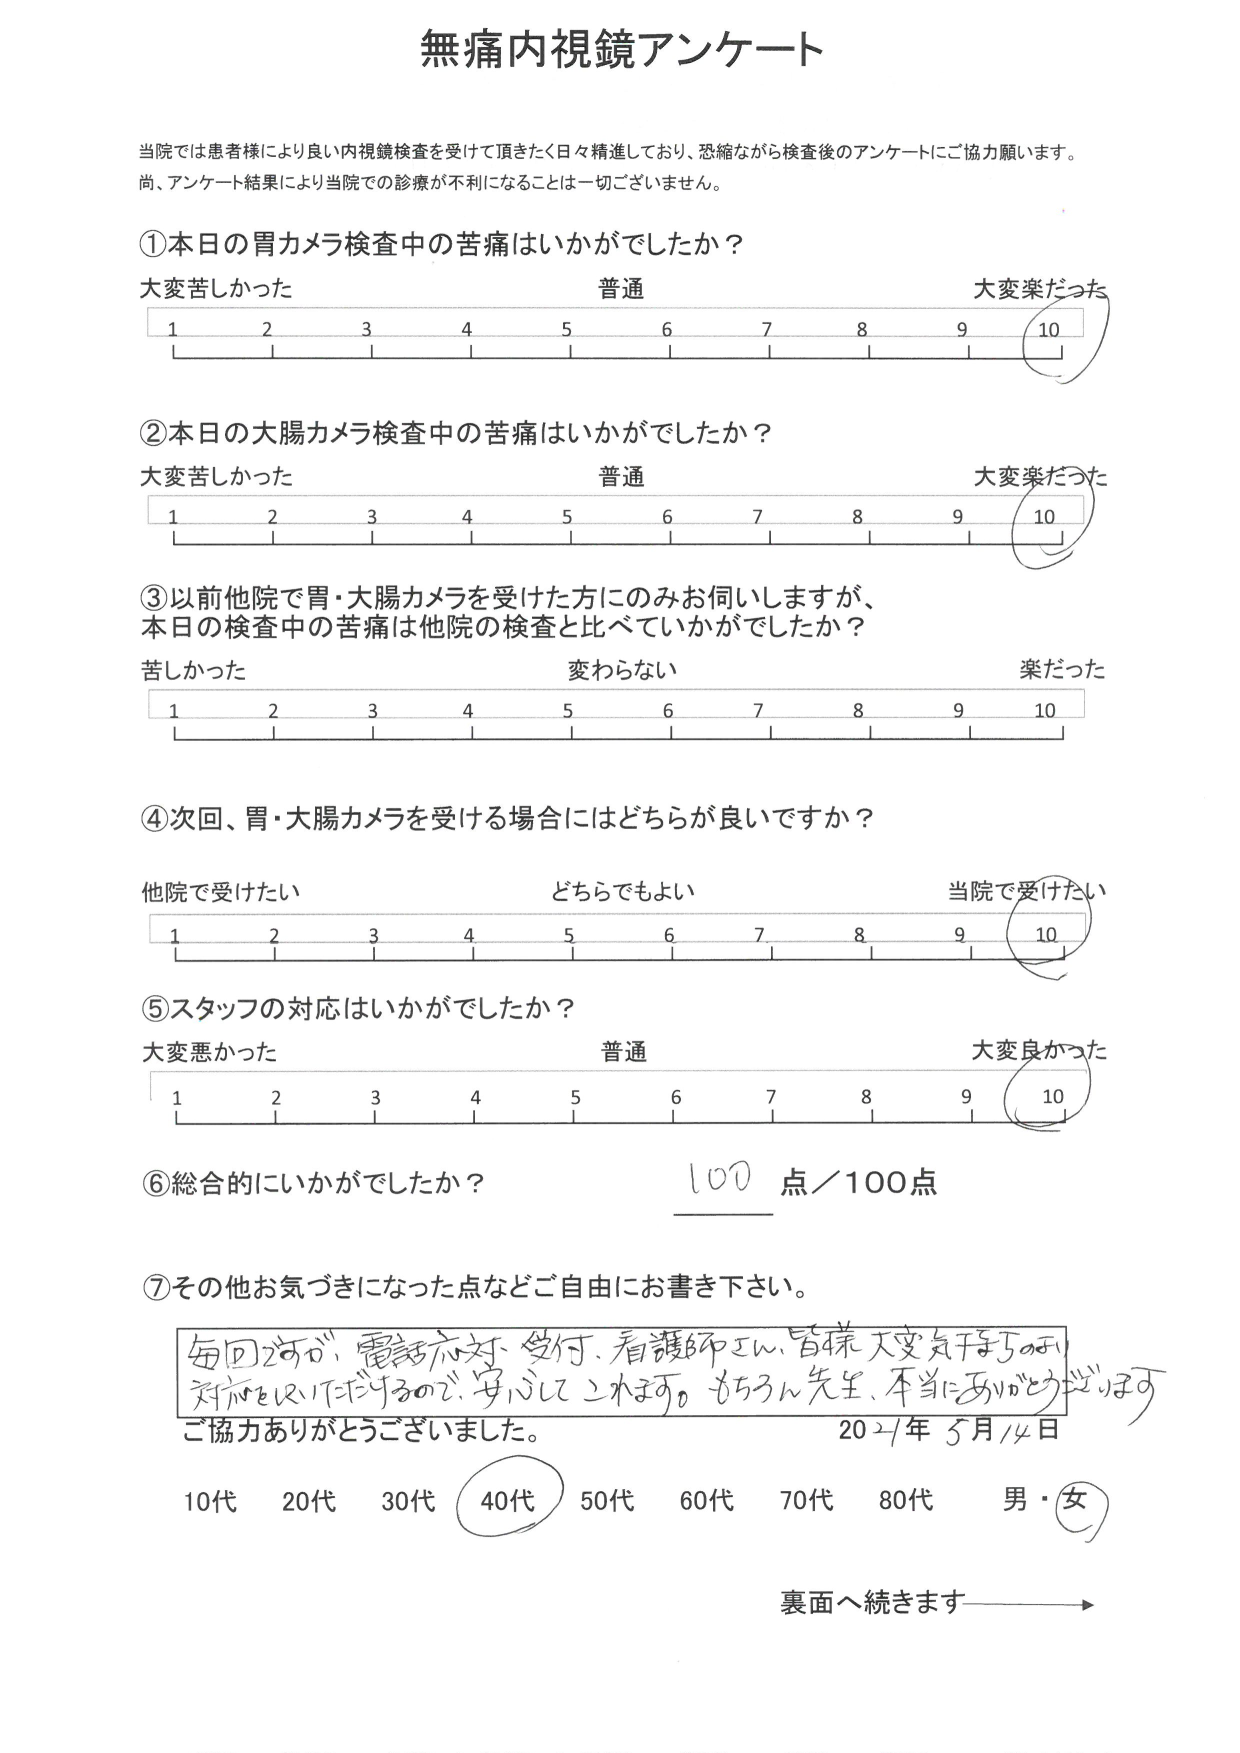 無痛内視鏡アンケート
当院では患者様により良い内視鏡検査を受けて頂きたく日々精進しており、恐縮ながら検査後のアンケートにご協力願います。
尚、アンケート結果により当院での診療が不利になることは一切ございません。
①本日の胃カメラ検査中の苦痛はいかがでしたか？
大変苦しかった 普通 大変楽だった
1 2 3 4 5 6 7 8 9 10
②本日の大腸カメラ検査中の苦痛はいかがでしたか？
大変苦しかった 普通 大変楽だった
1 2 3 4 5 6 7 8 9 10
③以前他院で胃・大腸カメラを受けた方にのみお伺いしますが、
本日の検査中の苦痛は他院の検査と比べていかがでしたか？
苦しかった 変わらない 楽だった
1 2 3 4 5 6 7 8 9 10
④次回、胃・大腸カメラを受ける場合にはどちらが良いですか？
他院で受けたい どちらでもよい 当院で受けたい
1 2 3 4 5 6 7 8 9 10
⑤スタッフの対応はいかがでしたか？
大変悪かった 普通 大変良かった
1 2 3 4 5 6 7 8 9 10
⑥総合的にいかがでしたか？ 100 点／100点
⑦その他お気づきになった点などご自由にお書き下さい。
毎回ですが、電話応対、受付、看護師さん、皆様大変気持ちのよい
対応をしていただけるので、安心してこれます。もちろん先生、本当にありがとうございます
ご協力ありがとうございました。 2021年 5月14日
10代 20代 30代 40代 50代 60代 70代 80代 男・女
裏面へ続きます